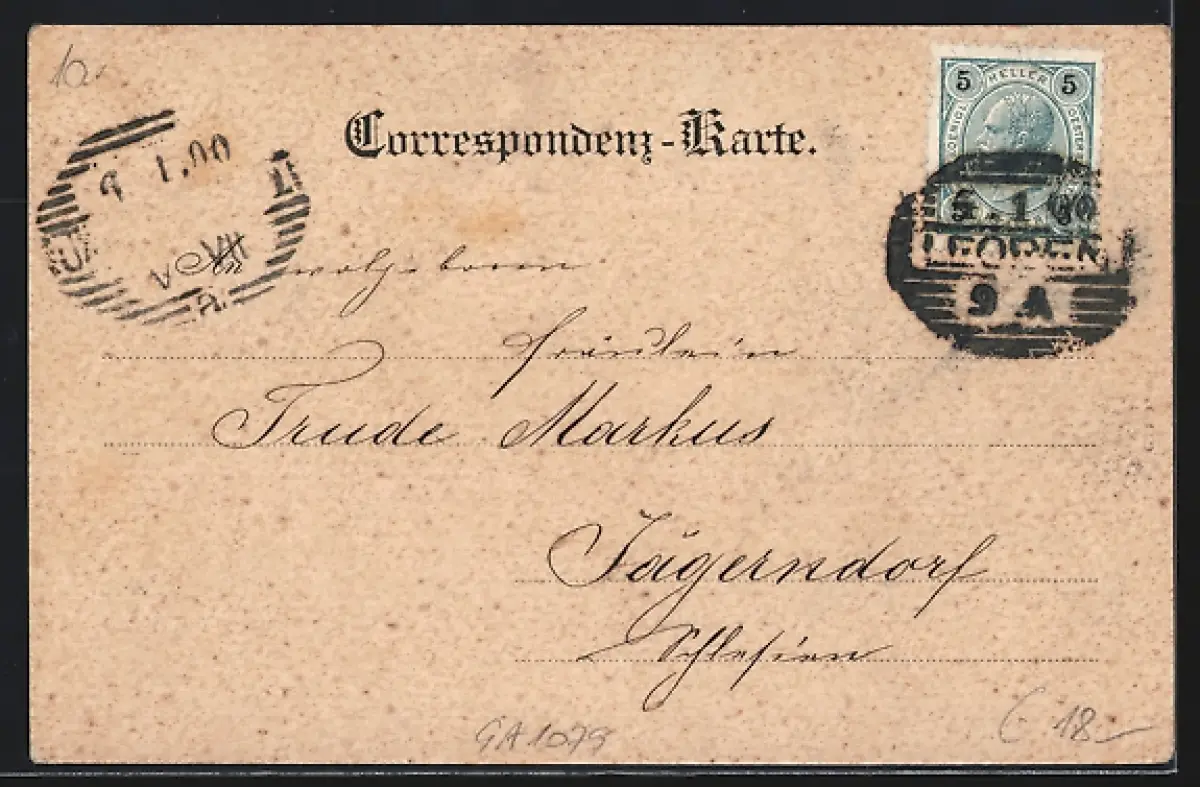 1a
Correspondenz-Karte.
5 HELLER 5
9 1.00
5.1 00
LEOBEN
9 A
An wolgeboren
Fräulein
Trude Markus
Jägerndorf
Schlesien
GA1079
€ 18.-